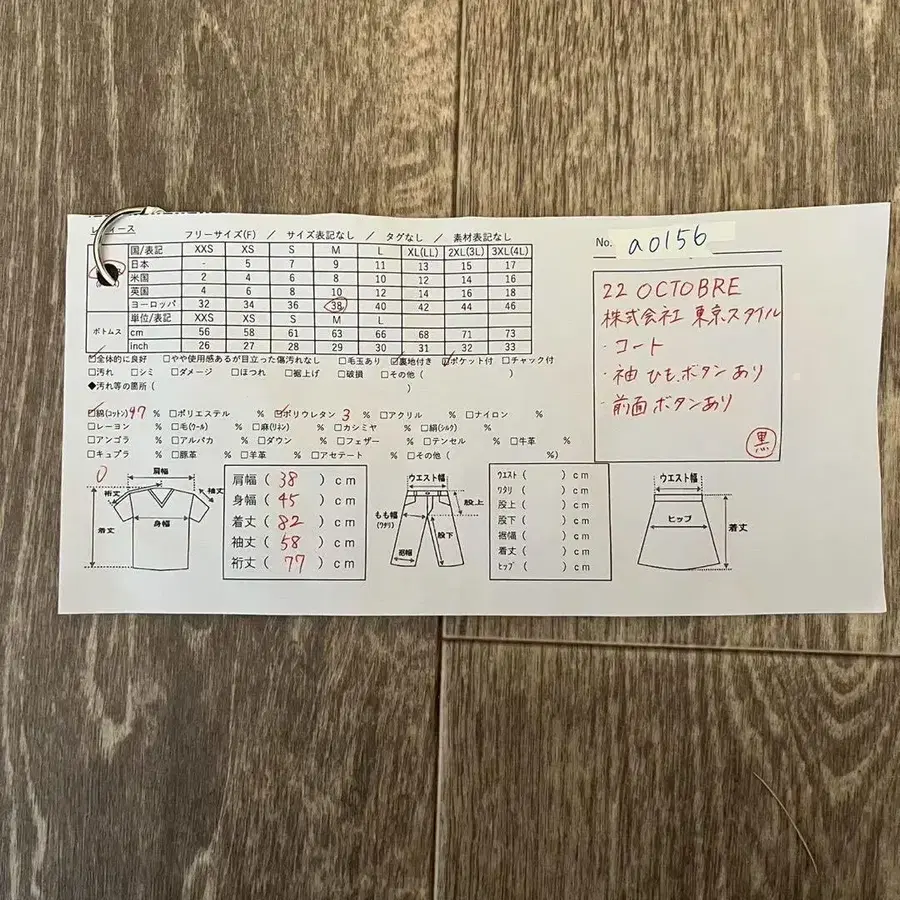 レディース
フリーサイズ(F) / サイズ表記なし / タグなし / 素材表記なし
No. a0156
国/表記 XXS XS S M L XL(LL) 2XL(3L) 3XL(4L)
日本 - 5 7 9 11 13 15 17
米国 2 4 6 8 10 12 14 16
英国 4 6 8 10 12 14 16 18
ヨーロッパ 32 34 36 38 40 42 44 46
単位/表記 XXS XS S M L
ボトムス cm 56 58 61 63 66 68 71 73
inch 26 27 28 29 30 31 32 33
☑全体的に良好 □やや使用感あるが目立った傷汚れなし □毛玉あり ☑裏地付き ☑ポケット付 □チャック付
□汚れ □シミ □ダメージ □ほつれ □裾上げ □破損 □その他( )
◆汚れ等の箇所( )
☑綿(コットン)97% □ポリエステル % ☑ポリウレタン 3% □アクリル % □ナイロン %
□レーヨン % □毛(ウール) % □麻(リネン) % □カシミヤ % □絹(シルク) %
□アンゴラ % □アルパカ % □ダウン % □フェザー % □テンセル % □牛革 %
□キュプラ % □豚革 % □羊革 % □アセテート % □その他( %)
22 OCTOBRE
株式会社 東京スタイル
・コート
・袖 ひも、ボタンあり
・前面 ボタンあり
黒
肩幅
裄丈
袖丈
身幅
着丈
肩幅( 38 )cm
身幅( 45 )cm
着丈( 82 )cm
袖丈( 58 )cm
裄丈( 77 )cm
ウエスト幅
股上
もも幅
(ワタリ)
股下
裾幅
ウエスト( )cm
ワタリ( )cm
股上( )cm
股下( )cm
裾幅( )cm
着丈( )cm
ヒップ( )cm
ウエスト幅
ヒップ
着丈